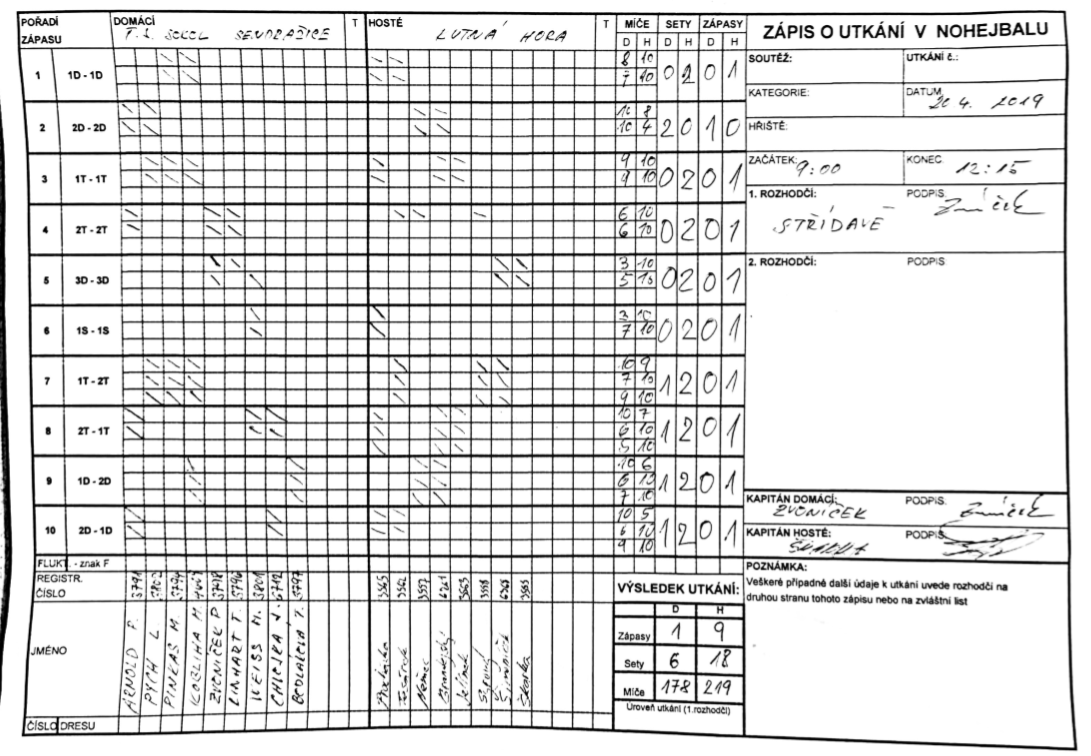 POŘADÍ ZÁPASU DOMÁCÍ T HOSTÉ T MÍČE SETY ZÁPASY
T.J. SOKOL SENDRAŽICE LUTNÁ HORA
D H D H D H
1 1D - 1D 8 10 0 2 0 1
7 10
2 2D - 2D 10 8 2 0 1 0
10 4
3 1T - 1T 9 10 0 2 0 1
9 10
4 2T - 2T 6 10 0 2 0 1
6 10
5 3D - 3D 3 10 0 2 0 1
5 10
6 1S - 1S 3 10 0 2 0 1
7 10
7 1T - 2T 10 9 1 2 0 1
7 10
9 10
8 2T - 1T 10 7 1 2 0 1
6 10
5 10
9 1D - 2D 10 6 1 2 0 1
6 10
7 10
10 2D - 1D 10 5 1 2 0 1
6 10
9 10
FLUKT. - znak F
REGISTR. ČÍSLO
3791 3802 3794 3718 3796 3801 6712 3797
3565 3562 3557 6761 3563 3558 6768 3555
JMÉNO
ARNOLD P.
PYCH L.
PINKAS M.
KOBLIHA M.
ZVONÍČEK P.
LINHART T.
WEISS M.
Němec
Jelínek
Škarka
ČÍSLO DRESU
VÝSLEDEK UTKÁNÍ:
D H
Zápasy 1 9
Sety 6 18
Míče 178 219
Úroveň utkání (1.rozhodčí)
ZÁPIS O UTKÁNÍ V NOHEJBALU
SOUTĚŽ: UTKÁNÍ č.:
KATEGORIE: DATUM 20 4. 2019
HŘIŠTĚ:
ZAČÁTEK: 9:00 KONEC 12:15
1. ROZHODČÍ: PODPIS
STŘÍDAVĚ
2. ROZHODČÍ: PODPIS
KAPITÁN DOMÁCÍ: PODPIS.
ZVONÍČEK
KAPITÁN HOSTÉ: PODPIS
ŠKARKA
POZNÁMKA:
Veškeré případné další údaje k utkání uvede rozhodčí na
druhou stranu tohoto zápisu nebo na zvláštní list